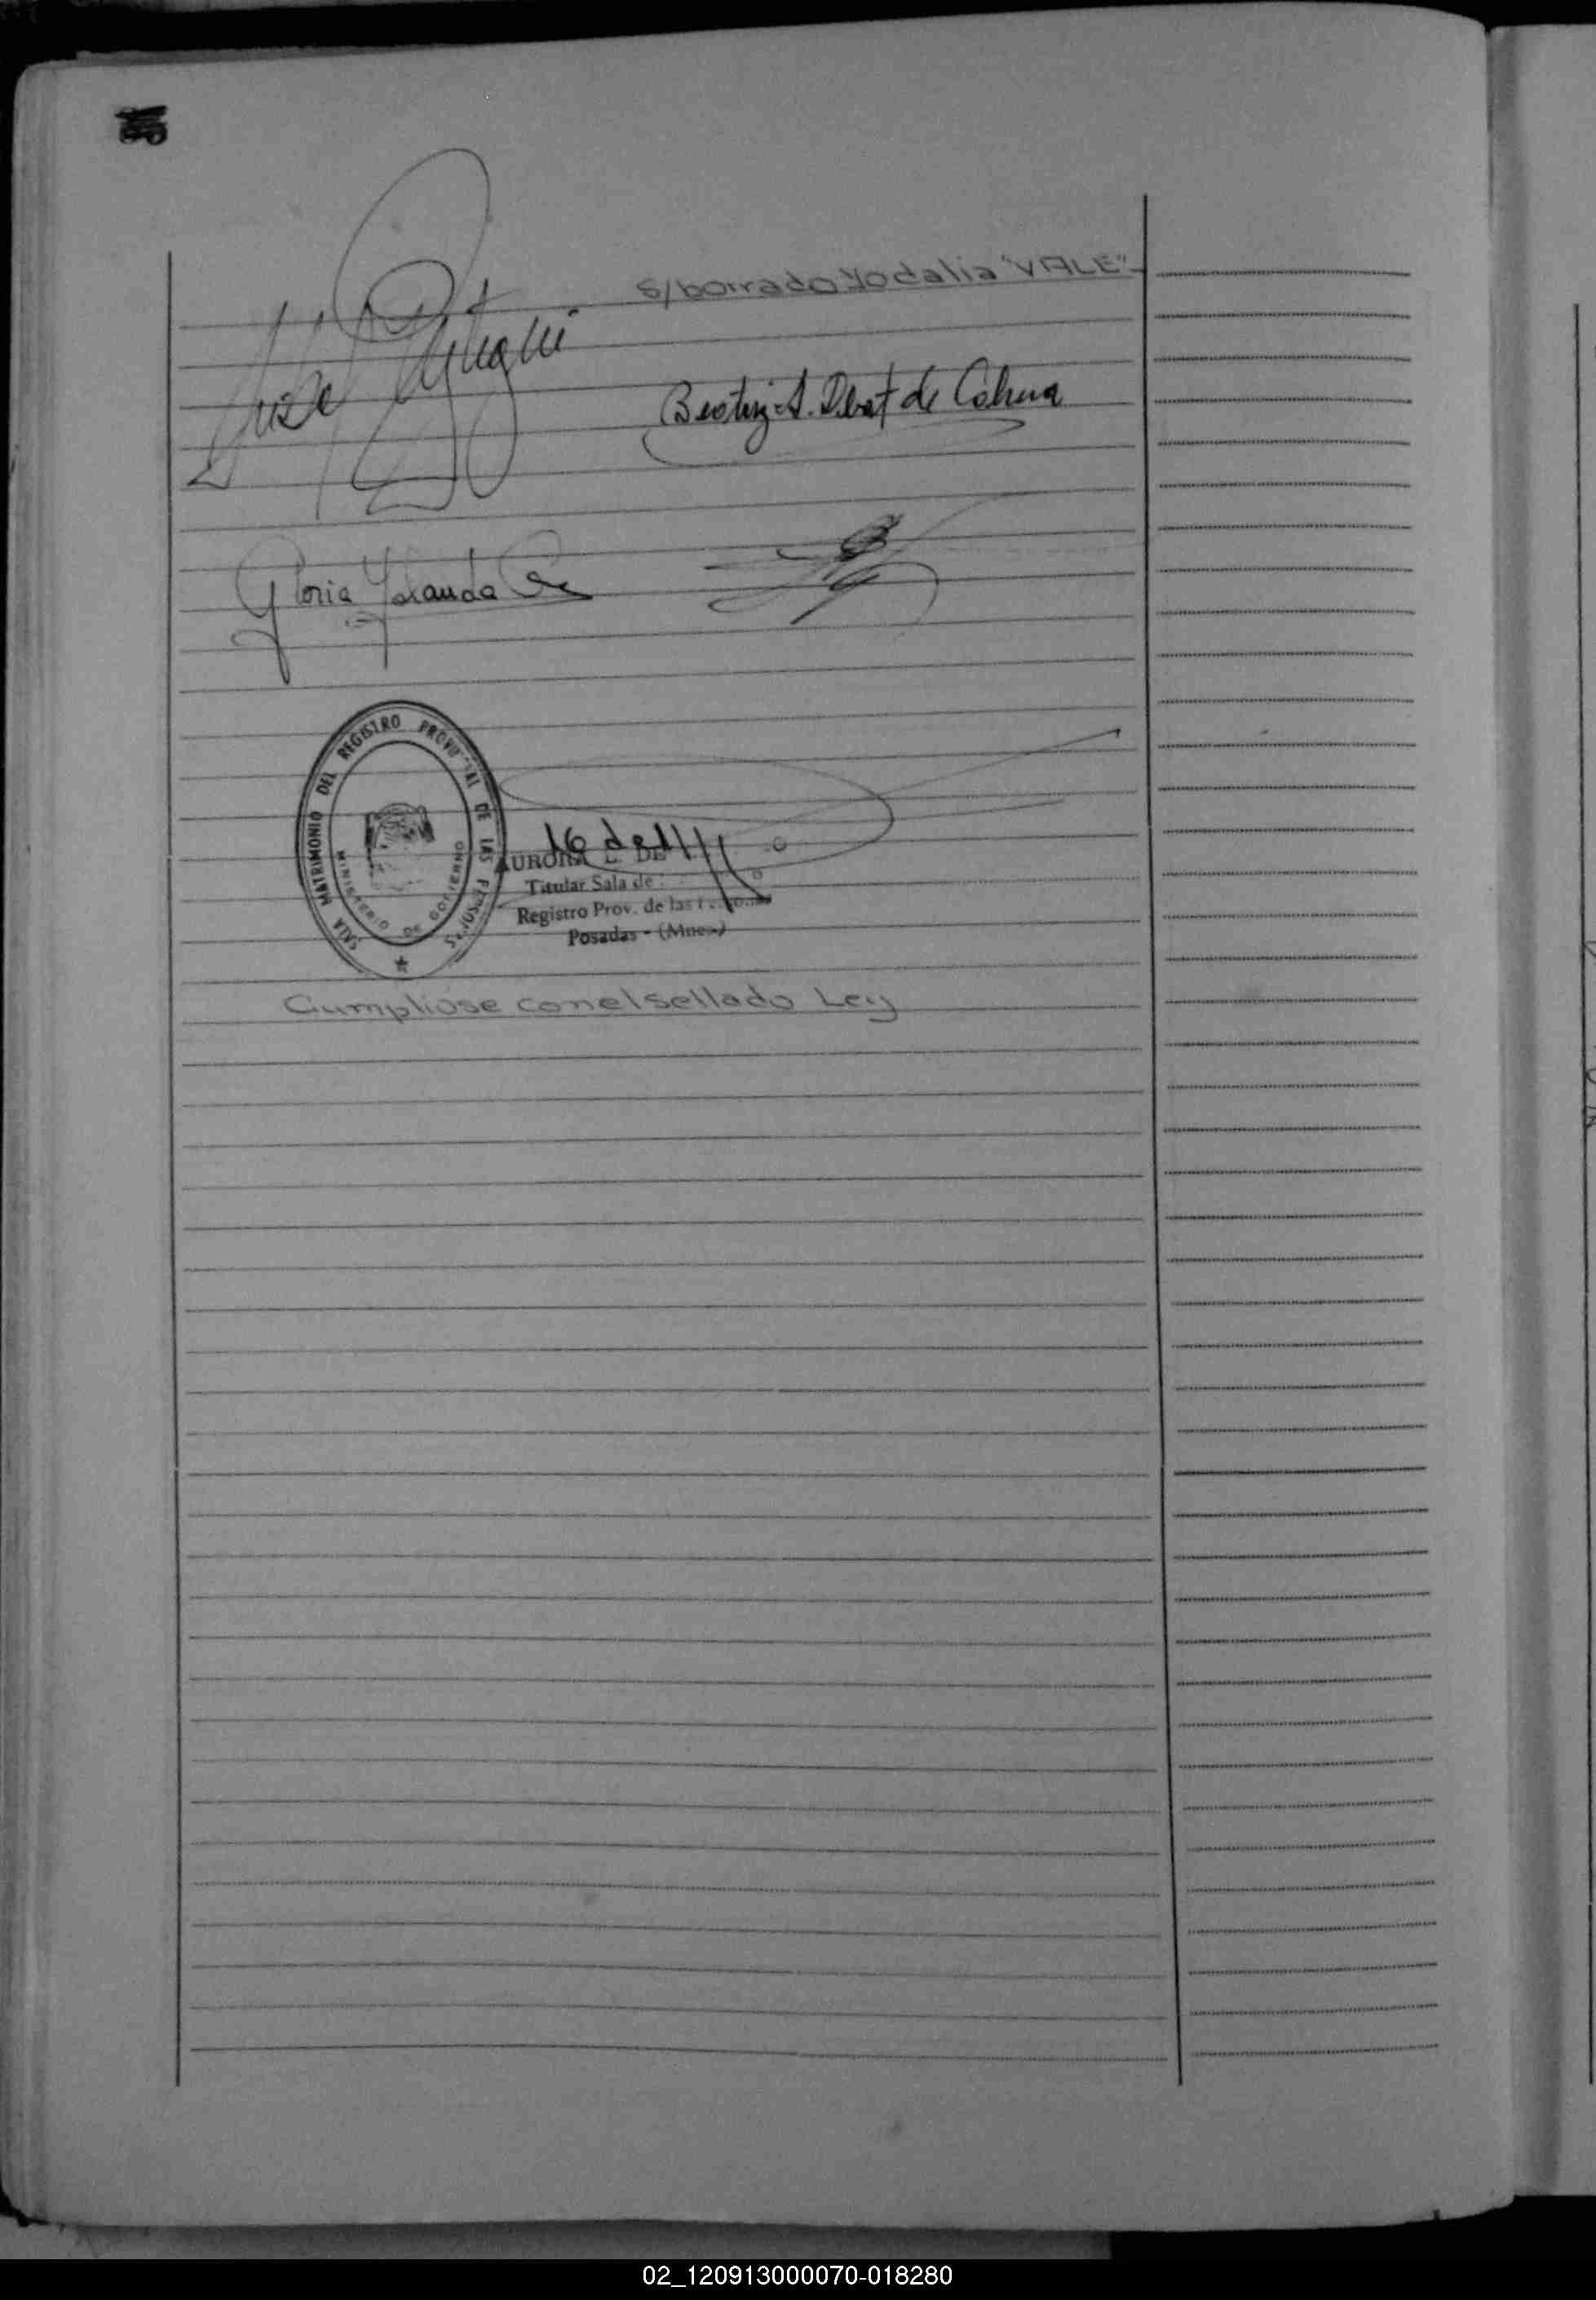 S/borrado Yodalia "VALE"-
Jose
Beatriz A. de
Gloria Yolanda
SALA MATRIMONIO DEL REGISTRO PROVINCIAL DE LAS PERSONAS
MINISTERIO DE GOBIERNO
AURORA L. DE
Titular Sala de
Registro Prov. de las
Posadas - (Mnes.)
Cumpliose con el sellado Ley
02_120913000070-018280